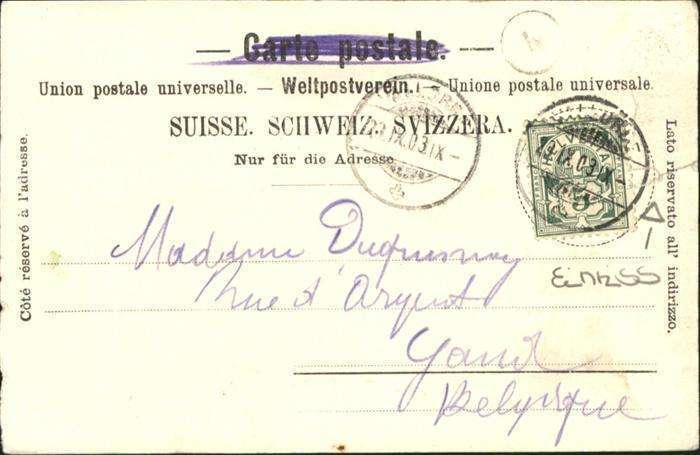 — Carte postale. —
Union postale universelle. — Weltpostverein. — Unione postale universale.
SUISSE. SCHWEIZ. SVIZZERA.
Nur für die Adresse
Côté réservé à l'adresse.
Lato riservato all' indirizzo.
IX.03.IX –
IX.03.IX –
Madame Duquesnoy
Rue d'Argent
Gand
Belgique